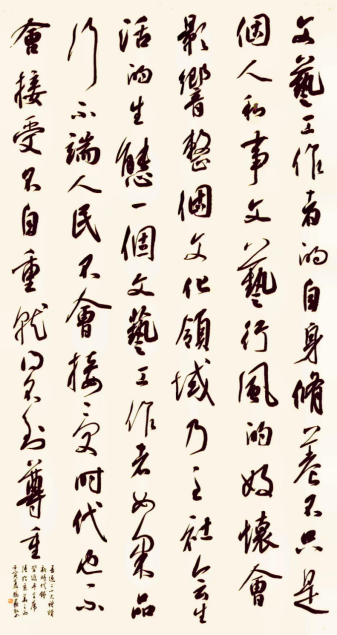 文藝工作者的自身脩養不只是
個人私事文藝行風的好懷會
影響整個文化領域乃至社會生
活的生態一個文藝工作者如果品
行不端人民不會接受時代也不
會接受不自重就得不到尊重
喜迎二十大禮讚
新時代